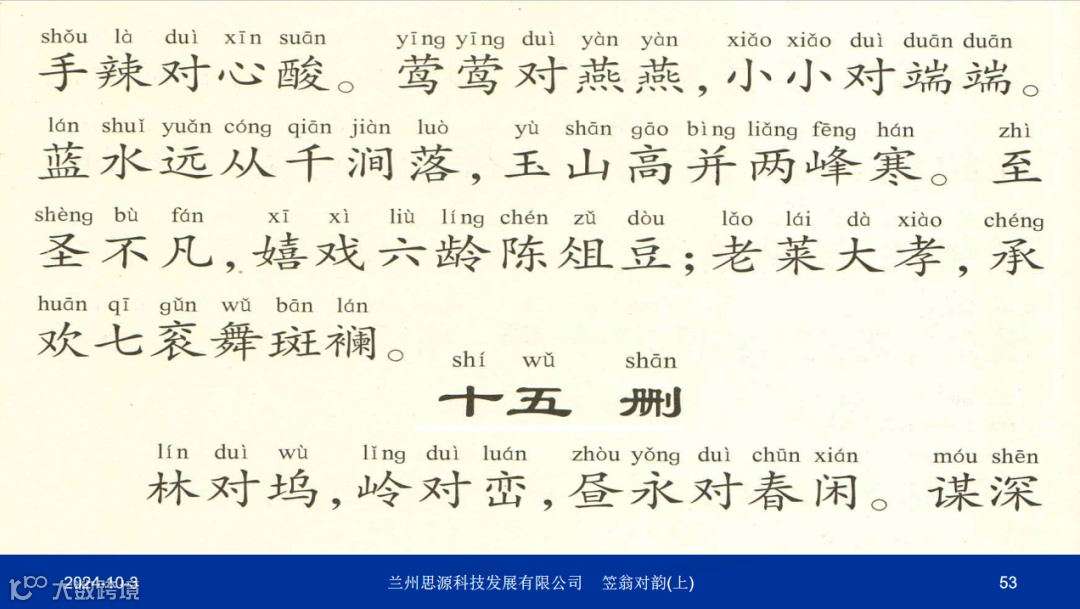 shǒu là duì xīn suān yīng yīng duì yàn yàn xiǎo xiǎo duì duān duān
手辣对心酸。莺莺对燕燕，小小对端端。
lán shuǐ yuǎn cóng qiān jiàn luò yù shān gāo bìng liǎng fēng hán zhì
蓝水远从千涧落，玉山高并两峰寒。至
shèng bù fán xī xì liù líng chén zǔ dòu lǎo lái dà xiào chéng
圣不凡，嬉戏六龄陈俎豆；老莱大孝，承
huān qī gǔn wǔ bān lán
欢七衮舞斑斓。
shí wǔ shān
十五 删
lín duì wù lǐng duì luán zhòu yǒng duì chūn xián móu shēn
林对坞，岭对峦，昼永对春闲。谋深
2024-10-3 兰州思源科技发展有限公司 笠翁对韵(上) 53
大数跨境